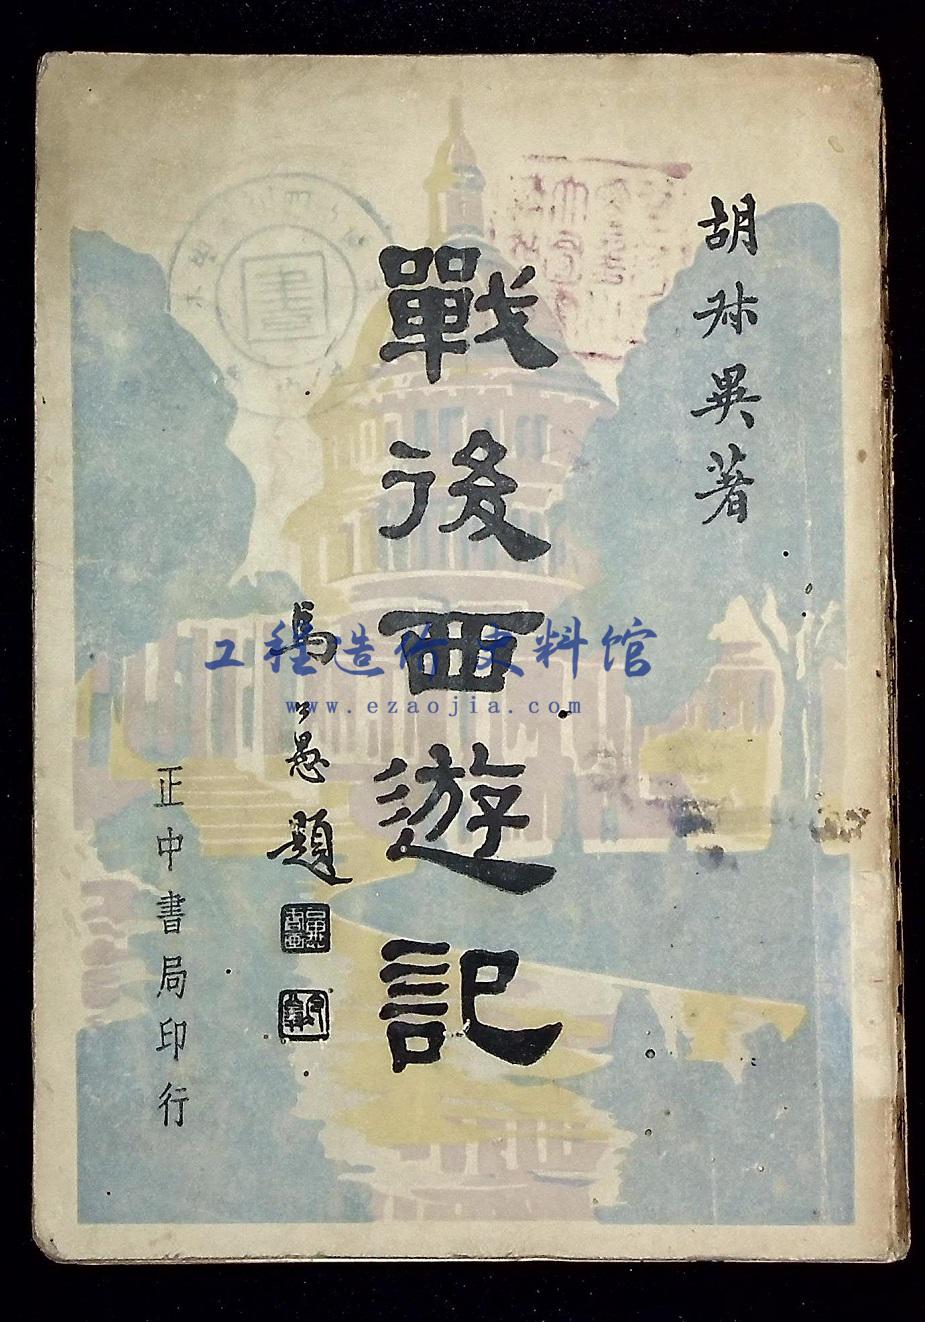 胡叔異著
戰後西遊記
馬公愚題
正中書局印行
書
工程造价史料馆
www.ezaojia.com